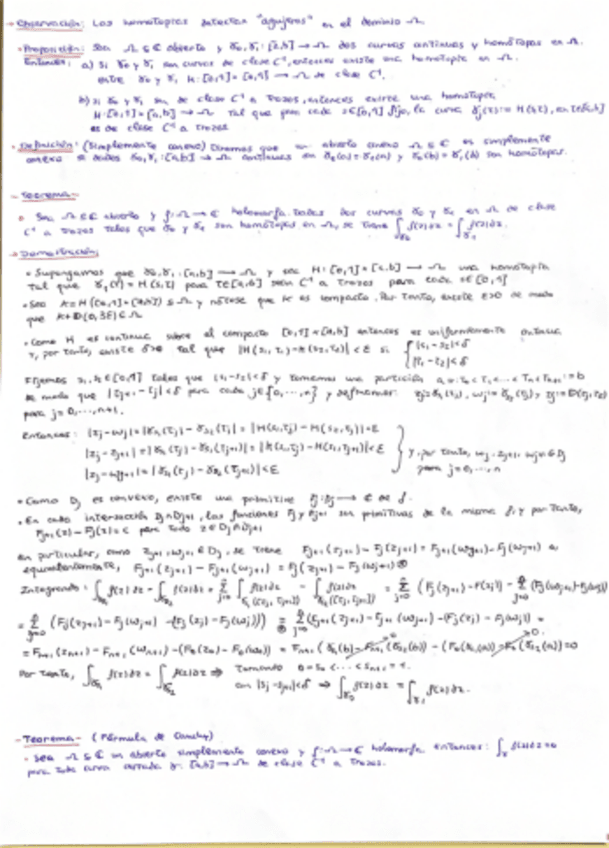 - Observación: Las homotopías detectan "agujeros" en el dominio Ω.
• Proposición: Sea Ω ⊆ ℂ abierto y γ₀, γ₁: [a,b] → Ω dos curvas continuas y homótopas en Ω.
Entonces: a) Si γ₀ y γ₁ son curvas de clase C¹, entonces existe una homotopía en Ω
entre γ₀ y γ₁ H: [0,1]×[a,b] → Ω de clase C¹.
b) Si γ₀ y γ₁ son de clase C¹ a trozos, entonces existe una homotopía
H: [0,1]×[a,b] → Ω tal que para cada s∈[0,1] fijo, la curva
es de clase C¹ a trozos
• Definición: (Simplemente conexo) Diremos que un abierto conexo Ω ⊆ ℂ es simplemente
conexo si dadas γ₀, γ₁: [a,b] → Ω continuas con γ₀(a)=γ₁(a) y γ₀(b)=γ₁(b) son homótopas.
- Teorema -
• Sea Ω ⊆ ℂ abierto y f: Ω → ℂ holomorfa. Dadas dos curvas γ₀ y γ₁ en Ω de clase
C¹ a trozos tales que γ₀ y γ₁ son homótopas en Ω, se tiene ∫_γ₀ f(z)dz = ∫_γ₁ f(z)dz.
→ Demostración:
• Supongamos que γ₀, γ₁: [a,b] → Ω y sea H: [0,1]×[a,b] → Ω una homotopía
tal que γₛ(τ) = H(s,τ) para τ∈[a,b] sean C¹ a trozos para cada s∈[0,1]
• Sea K = H([0,1]×[a,b]) ⊆ Ω y nótese que K es compacto. Por tanto, existe ε>0 de modo
que K + D(0,3ε) ⊆ Ω
• Como H es continua sobre el compacto [0,1]×[a,b] entonces es uniformemente continua
y, por tanto, existe δ>0 tal que |H(s₁,τ₁) - H(s₂,τ₂)| < ε si { |s₁-s₂|<δ
|τ₁-τ₂|<δ
Fijemos s₁, s₂ ∈ [0,1] tales que |s₁-s₂|<δ y tomemos una partición a = τ₀ < τ₁ < ... < τₙ < τₙ₊₁ = b
de modo que |τⱼ₊₁ - τⱼ| < δ para cada j∈{0,...,n} y definamos:
para j = 0, ..., n+1.
Entonces: |zⱼ - wⱼ| = |γₛ₁(τⱼ) - γₛ₂(τⱼ)| = |H(s₁,τⱼ) - H(s₂,τⱼ)| < ε
|zⱼ - zⱼ₊₁| = |γₛ₁(τⱼ) - γₛ₁(τⱼ₊₁)| = |H(s₁,τⱼ) - H(s₁,τⱼ₊₁)| < ε
|zⱼ - wⱼ₊₁| = |γₛ₁(τⱼ) - γₛ₂(τⱼ₊₁)| < ε
y, por tanto, wⱼ, zⱼ₊₁, wⱼ₊₁ ∈ Dⱼ
para j = 0, ..., n
• Como Dⱼ es convexo, existe una primitiva Fⱼ: Dⱼ → ℂ de f.
• En cada intersección Dⱼ∩Dⱼ₊₁, las funciones Fⱼ y Fⱼ₊₁ son primitivas de la misma f, y por tanto,
Fⱼ₊₁(z) - Fⱼ(z) = c para todo z ∈ Dⱼ∩Dⱼ₊₁
en particular, como zⱼ₊₁, wⱼ₊₁ ∈ Dⱼ, se tiene Fⱼ₊₁(zⱼ₊₁) - Fⱼ(zⱼ₊₁) = Fⱼ₊₁(wⱼ₊₁) - Fⱼ(wⱼ₊₁) o,
equivalentemente, Fⱼ₊₁(zⱼ₊₁) - Fⱼ₊₁(wⱼ₊₁) = Fⱼ(zⱼ₊₁) - Fⱼ(wⱼ₊₁)
Integrando: ∫_γₛ₁ f(z)dz - ∫_γₛ₂ f(z)dz
Por tanto, ∫_γₛ₁ f(z)dz = ∫_γₛ₂ f(z)dz ⇒ Tomando 0 = s₀ < ... < sₙ₊₁ = 1
con |sⱼ - sⱼ₊₁|<δ ⇒ ∫_γ₀ f(z)dz = ∫_γ₁ f(z)dz.
- Teorema - (Fórmula de Cauchy)
• Sea Ω ⊆ ℂ un abierto simplemente conexo y f: Ω → ℂ holomorfa entonces: ∫_γ f(z)dz = 0
para toda curva cerrada γ: [a,b] → Ω de clase C¹ a trozos.